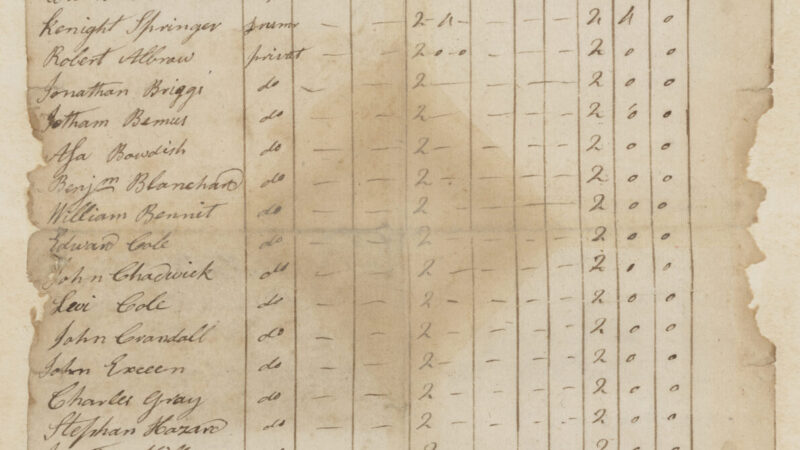 Kenight Springer Drumr — — 2 - 4 - — — — 2 4 0
Robert Albrow privat — — 2 0 - 0 — — — 2 0 0
Jonathan Briggs do — — 2 — — — — 2 0 0
Jotham Bemus do — — 2 — — — — 2 0 0
Asa Bowdish do — — 2 — — — — 2 0 0
Benjm Blanchard do — — 2 — — — — 2 0 0
William Bennit do — — 2 — — — — 2 0 0
Edward Cole do — — 2 — — — — 2 0 0
John Chadwick do — — 2 — — — — 2 0 0
Levi Cole do — — 2 - — — — 2 0 0
John Crandall do — — 2 — — — — 2 0 0
John Exceen do — — 2 - — — — 2 0 0
Charles Gray do — — 2 — — — — 2 0 0
Stephan Hazard do — — 2 — — — — 2 0 0